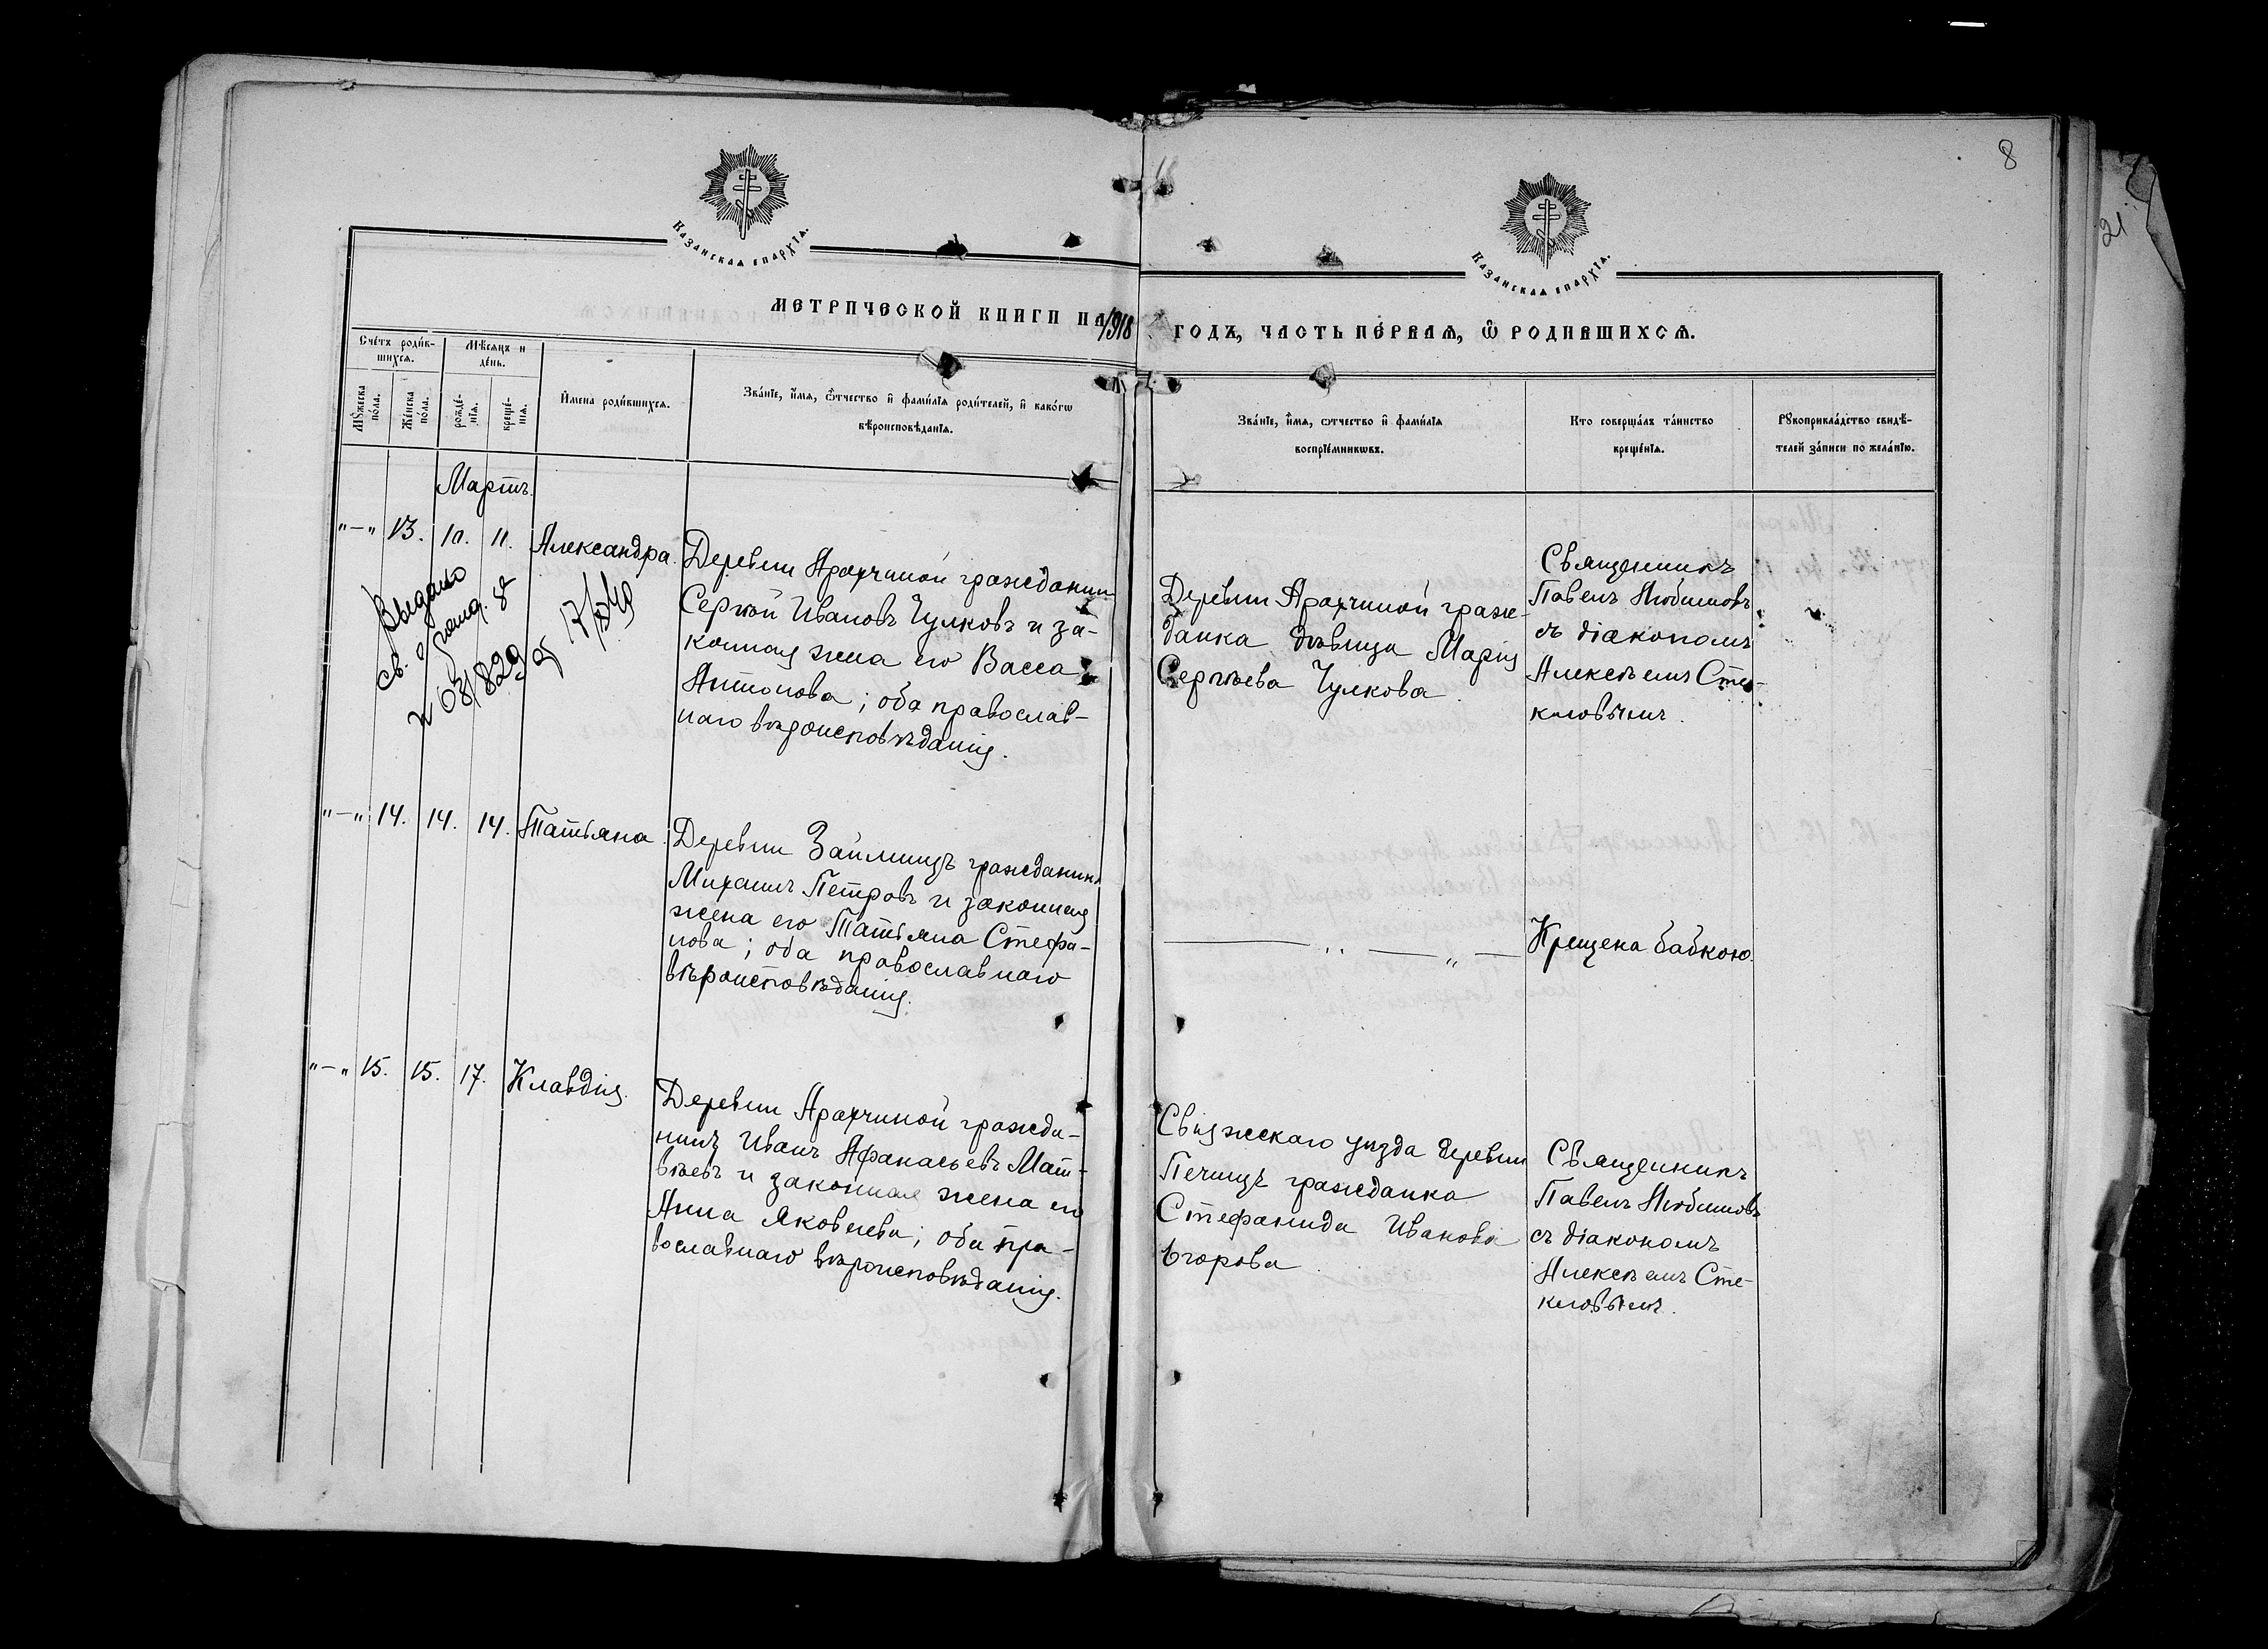 8
21
Казанская епархїа.
Казанская епархїа.
Метрической книги на 1918
годъ, часть пе́рвая, ѡ҆ родившихся.
Сче́тъ роди́в-
шихся.
Мѣ́сяцъ и
де́нь.
Мꙋ́жеска
по́ла.
Же́нска
по́ла.
рожде́-
нїя.
креще́-
нїя.
И҆мена роди́вшихся.
Зва́нїе, и҆́мя, ѻ҆́тчество и҆ фами́лїя роди́телей, и҆ како́гѡ
вѣроисповѣ́данїя.
Зва́нїе, и҆́мя, ѻ҆́тчество и҆ фами́лїя
воспрїе́мникѡвъ.
Кто соверша́лъ та́инство
креще́нїя.
Рꙋкоприкла́дство свидѣ́-
телей за́писи по жела́нїю.
Мартъ.
"—" 13. 10. 11. Александра.
Деревни Арахчиной гражданин
Сергѣй Ивановъ Чулковъ и за-
конная жена его Васса
Антонова; оба православ-
наго вѣроисповѣданія.
Деревни Арахчиной граж-
данка дѣвица Марія
Сергѣева Чулкова.
Священникъ
Павелъ Любимовъ
съ діакономъ
Алексѣемъ Сте-
кловымъ.
Выдано
св.
031829
"—" 14. 14. 14. Татьяна.
Деревни Займищъ гражданинъ
Михаилъ Петровъ и законная
жена его Татьяна Стефа-
нова; оба православнаго
вѣроисповѣданія.
— " — " —
Крещена бабкою.
"—" 15. 15. 17. Клавдія.
Деревни Арахчиной гражда-
нинъ Иванъ Афанасьевъ Мат-
вѣевъ и законная жена его
Анна Яковлева; оба пра-
вославнаго вѣроисповѣданія.
Свіяжскаго уѣзда деревни
Печищъ гражданка
Стефанида Иванова
Егорова.
Священникъ
Павелъ Любимовъ
съ діакономъ
Алексѣемъ Сте-
кловымъ.